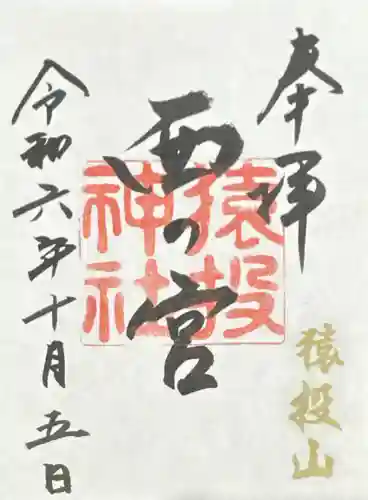 奉拝
猿投山
西の宮
猿投神社
令和六年十月五日